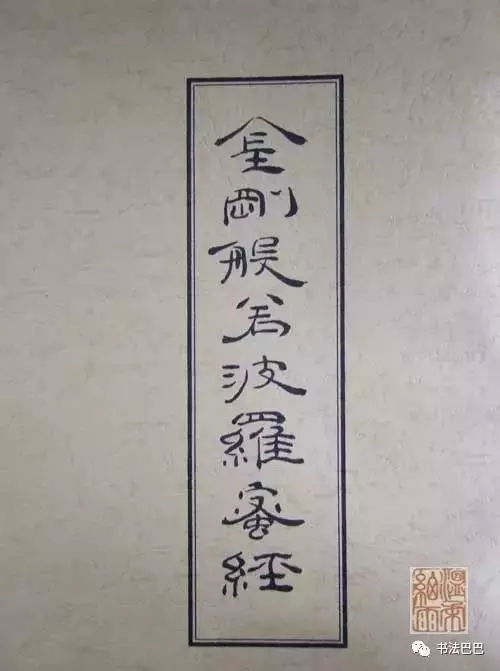 金剛般若波羅蜜經
书法巴巴